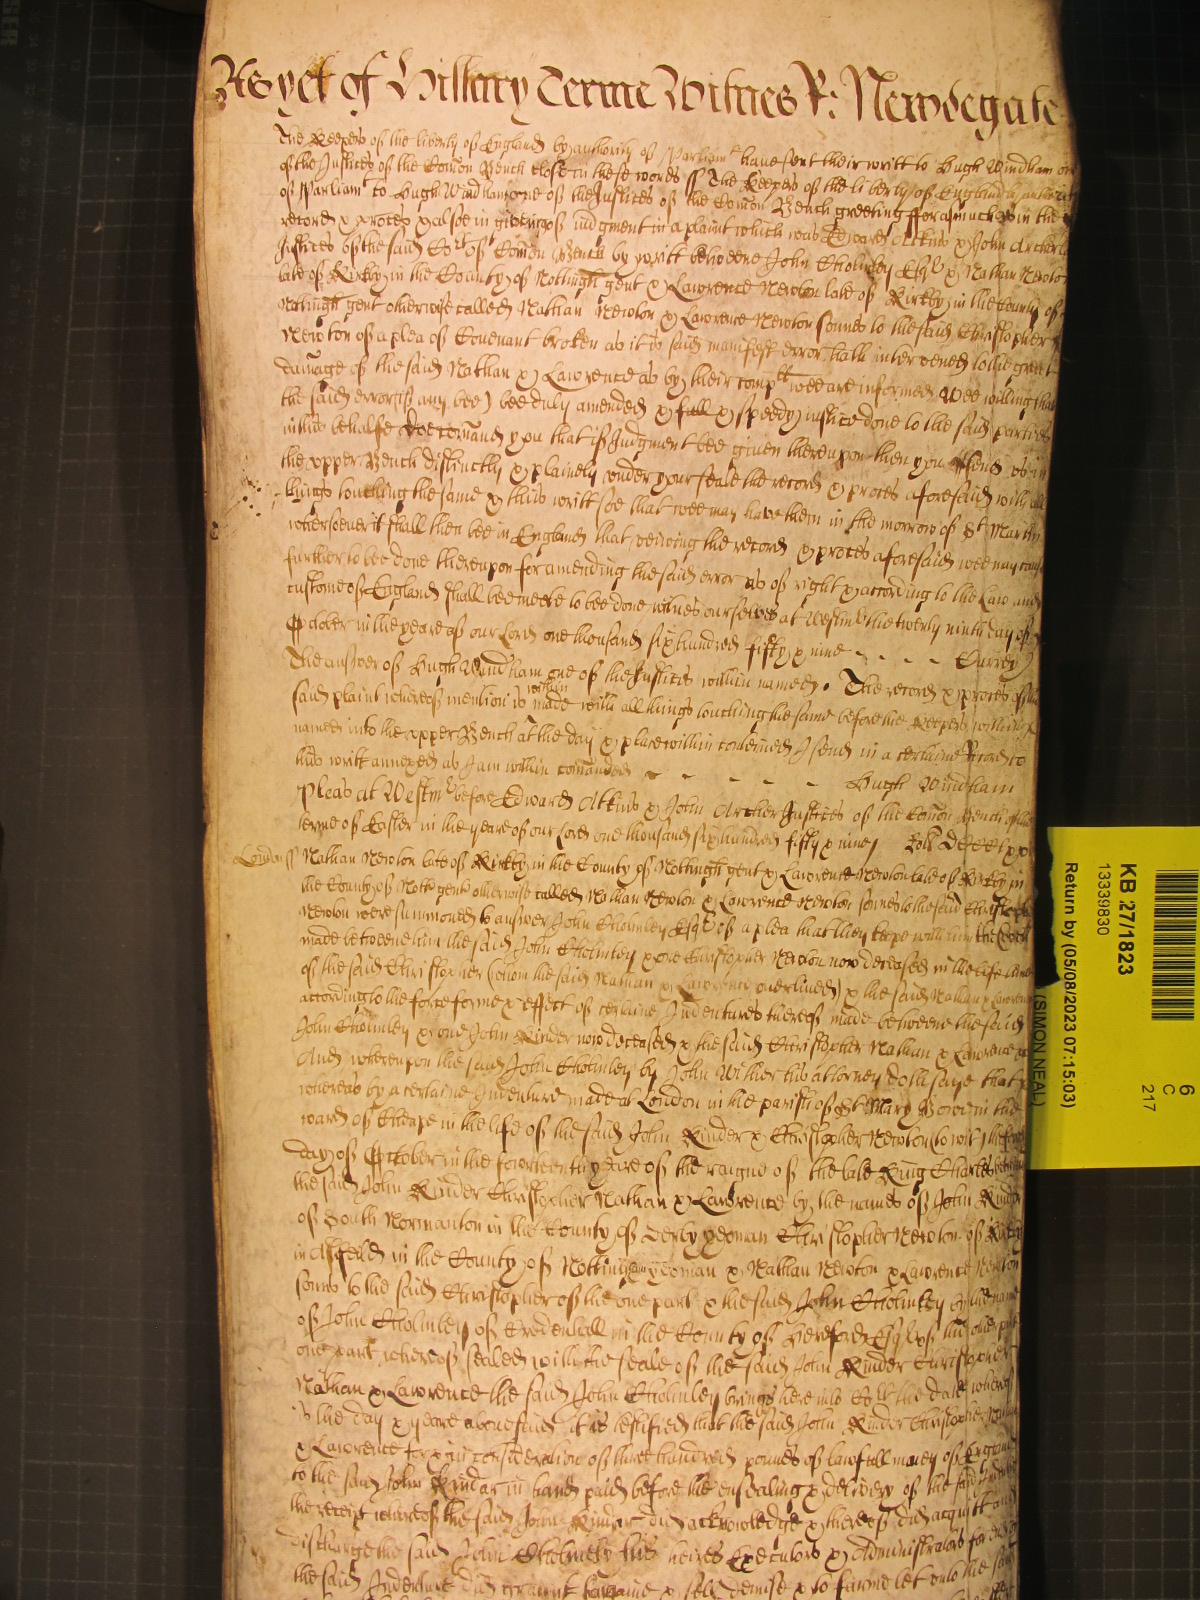 As yet of Hillary Terme Witnes R: Newdegate
The Keepers of the liberty of England by authority of Parliamt have sent their writt to Hugh Windham one
of the Justices of the Com̄on Bench close in these words ss The Keepers of the liberty of England by authority
of Parliamt to Hugh Windham one of the Justices of the Com̄on Bench greeting fforasmuch as in the
record & proces & alsoe in giveing of judgment in a plaint which was Edward Atkins & John Archer
Justices of the said Cort of Com̄on Bench by writt betweene John Cholmley Esqr & Nathan Newton
late of Kirkby in the County of Nottingh gent & Lawrence Newton late of Kirkby in the County of
Nottingh gent otherwise called Nathan Newton & Lawrence Newton sonnes to the said Christopher
Newton of a plea of Covenant broken as it is said manifest error hath intervened to the great
damage of the said Nathan & Lawrence as by their complt wee are informed Wee willing that
the said error (if any bee) bee duly amended & full & speedy justice done to the said parties
in this behalfe doe com̄and you that if Judgment bee given thereupon then you send to us in
the upper Bench distinctly & plainely under your seale the record & proces aforesaid with all
things touching the same & this writt soe that wee may have them in the morrow of St Martin
wheresoever it shall then bee in England that veiwing the record & proces aforesaid wee may cause
further to bee done thereupon for amending the said error as of right & according to the Law and
custome of England shall bee meete to bee done witnes ourselves at Westmr the twenty ninth day of
October in the yeare of our Lord one thousand six hundred fifty & nine - - - -
The answer of Hugh Windham one of the Justices within named. The record & proces of the
said plaint whereof mention is within made with all things touching the same before the Keepers within
named into the upper Bench at the day & place within conteined I send in a certaine Record to
this writt annexed as I am within com̄anded - - - - - Hugh Windham
Pleas at Westmr before Edward Atkins & John Archer Justices of the Com̄on Bench of the
terme of Easter in the yeare of our Lord one thousand six hundred fifty & nine
London ss Nathan Newton late of Kirkby in the County of Nottingh gent & Lawrence Newton late of Kirkby in
the County of Nott gent otherwise called Nathan Newton & Lawrence Newton sonnes to the said Christopher
Newton were summoned to answer John Cholmley Esqr of a plea that they keepe with him the Covent
made betweene him the said John Cholmley & one Christopher Newton now deceased in the life time
of the said Christopher (whom the said Nathan & Lawrence overlived) & the said Nathan & Lawrence
according to the force forme & effect of certaine Indentures thereof made betweene the said
John Cholmley & one John Kinder now deceased & the said Christopher Nathan & Lawrence &c
And whereupon the said John Cholmley by John Wither his attorney doth saye that
whereas by a certaine Indenture made at London in the parish of St Mary Bowe in the
ward of Cheape in the life of the said John Kinder & Christopher Newton (to wit) the
day of October in the fowerteenth yeare of the raigne of the late King Charles betweene
the said John Kinder Christopher Nathan & Lawrence by the names of John Kinder
of South Normanton in the County of Derby yeoman Christopher Newton of Kirkby
in Asfeild in the County of Nottingh yeoman & Nathan Newton & Lawrence Newton
sonns to the said Christopher of the one part & the said John Cholmley by the name
of John Cholmley of Credenhill in the County of Hereford Esqr of the other part
one part whereof sealed with the seale of the said John Kinder Christopher
Nathan & Lawrence the said John Cholmley brings here into Cort the date whereof
is the day & yeare abovesaid it is testified that the said John Kinder Christopher Nathan
& Lawrence for & in consideration of three hundred pounds of lawfull money of England
to the said John Kinder in hand paid before the ensealing & delivery of the said Indenture
the receipt whereof the said John Kinder did acknowledge & thereof did acquitt and
discharge the said John Cholmley his heires Executors & Administrators for ever
the said Indenture did graunt bargaine & sell demise & to farme let unto the said
KB 27/1823
13339830
Return by (05/08/2023 07:15:03)
(SIMON NEAL)
6
C
217